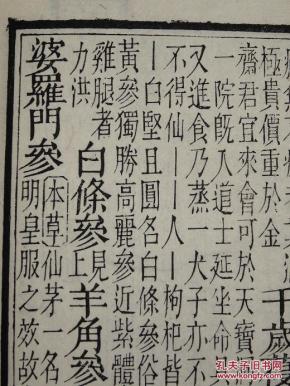 極貴價重於金
千歲
齋君宜來會可於天寶
一院旣入道士延坐命
又進食乃蒸一犬子亦不
不得仙｜人｜枸杞皆
｜白堅且圓名白條參俗
黃參獨勝高麗參近紫體
雞腿者
力洪
白條參
見
上
羊角參
婆羅門參
本草仙茅一名
明皇服之效故